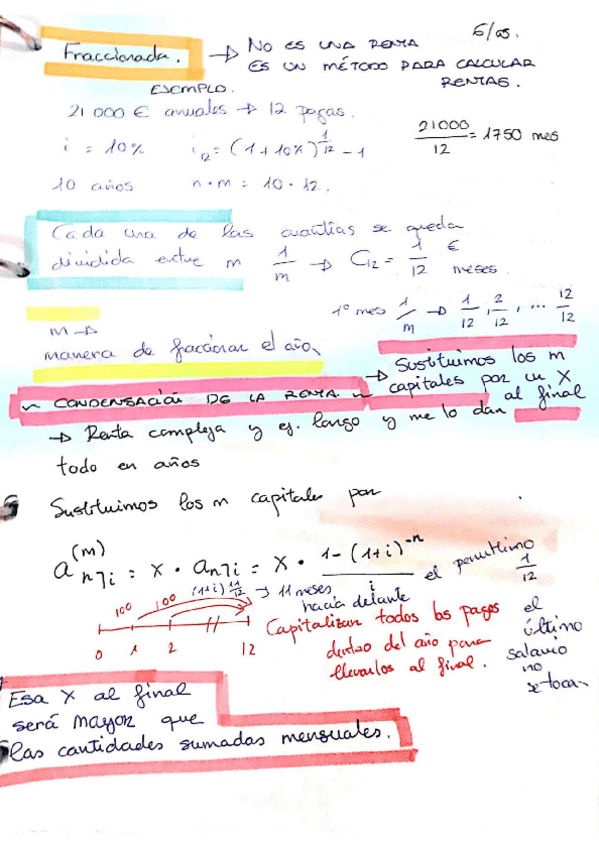 5/05.
Fraccionada. → NO ES UNA RENTA
ES UN MÉTODO PARA CALCULAR RENTAS.
EJEMPLO.
21 000 € anuales → 12 pagas.
21000/12 = 1750 mes
i = 10% i12 = (1+10%)^1/12 - 1
10 años n·m = 10·12.
Cada una de las cuantías se queda
dividida entre m 1/m → C12 = 1/12 € meses.
1º mes 1/m → 1/12, 2/12, ... 12/12
m →
manera de fraccionar el año
~ CONDENSACIÓN DE LA RENTA ~ → Sustituimos los m
capitales por un X
al final
→ Renta compleja y ej. largo y me lo dan
todo en años
Sustituimos los m capitales por
a^(m) n¬i = X · an¬i = X · 1-(1+i)^-n / i
(1+i)^11/12 → 11 meses
hacia delante
el penúltimo
1/12
el
último
salario
no
se toca
100 100
0 1 2 12
Capitalizan todos los pagos
dentro del año para
llevarlos al final.
Esa X al final
será mayor que
las cantidades sumadas mensuales.